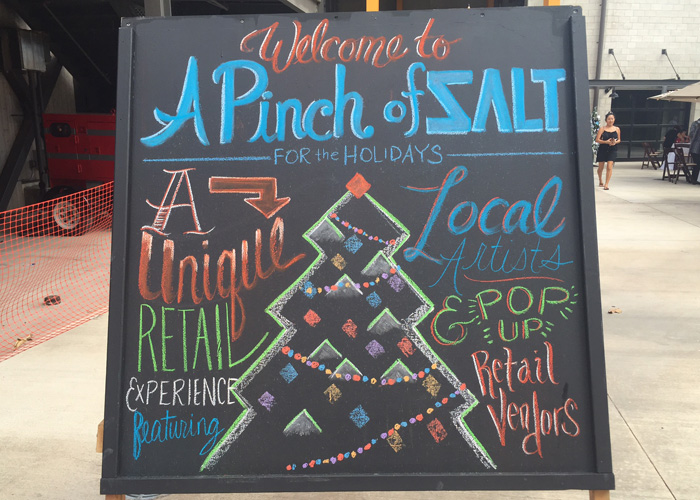 Welcome to
A Pinch of SALT
FOR the HOLIDAYS
A
Unique
RETAIL
EXPERIENCE
featuring
Local
Artists
& POP
UP
Retail
Vendors